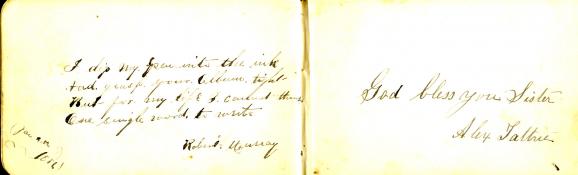 I dip my pen into the ink
And grasp your Album tight
But for my life I cannot think
One single word to write
Robert Murray
God bless you Sister
Alex